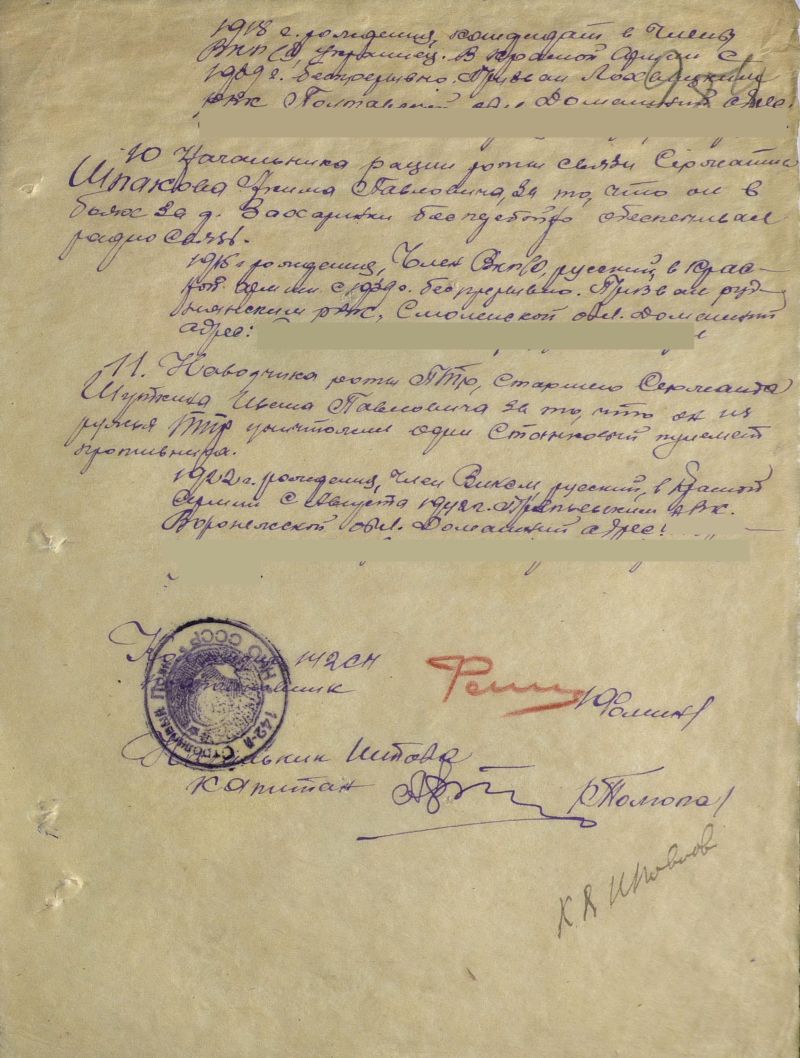 1918 г. рождения, кандидат в члены
ВКП(б), украинец. В Красной Армии с
1939 г. беспрерывно. Призван Лохвицким
РВК Полтавской обл. Домашний адрес:
10 Начальника рации роты связи Сержанта
Шпакова Ефима Павловича, за то, что он в
боях за д. Захаринки бесперебойно обеспечивал
радиосвязь.
1915 г. рождения, Член ВКП(б), русский, в Крас-
ной армии с 1939 г. беспрерывно. Призван Руд-
нянским РВК, Смоленской обл. Домашний
адрес:
11. Наводчика роты ПТР, старшего Сержанта
Шуткина Ивана Павловича за то, что он из
ружья ПТР уничтожил один станковый пулемет
противника.
1922 г. рождения, член ВЛКСМ, русский, в Красной
Армии с августа 1942 г. РВК.
Воронежской обл. Домашний адрес:
142 СП
Фомин
Начальник Штаба
Капитан /Толюпа/
142-й Стрелковый НКО СССР